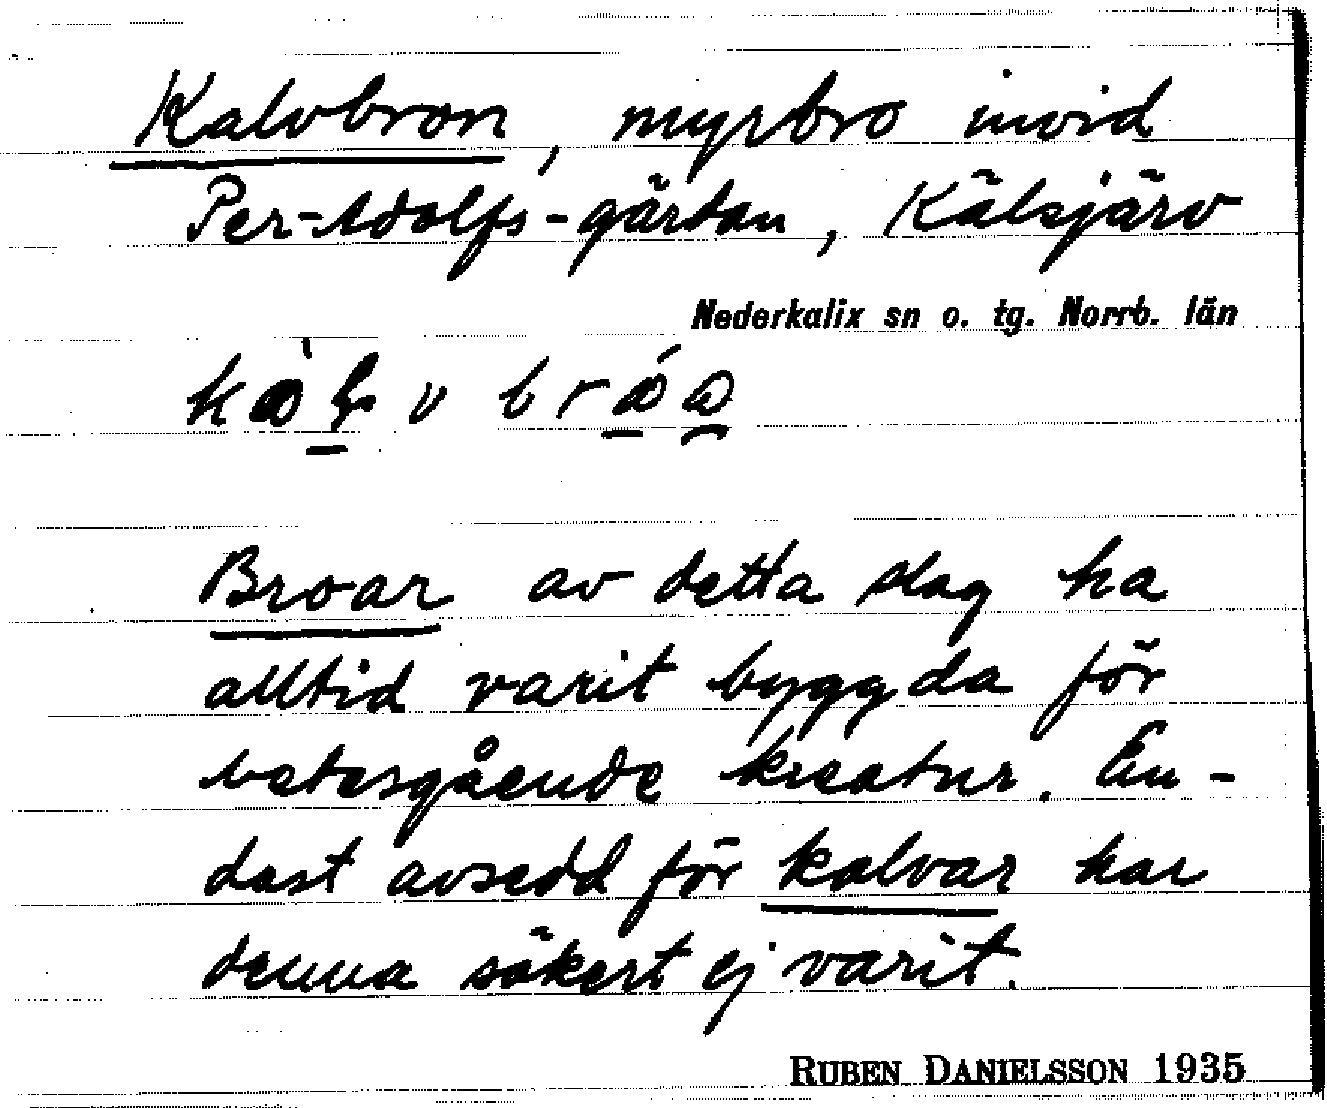 Kalvbron, myrbro invid
Per-Adolfs-gården, Kälsjärv
Nederkalix sn o. tg. Norrb. län
Broar av detta slag ha
alltid varit byggda för
betesgående kreatur. En-
dast avsedd för kalvar har
denna säkert ej varit.
RUBEN DANIELSSON 1935